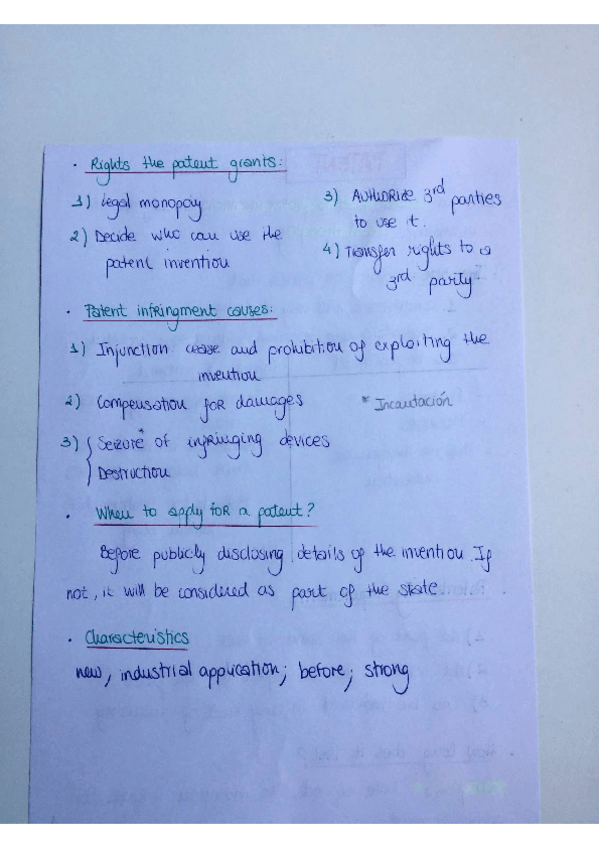 · Rights the patent grants:
1) Legal monopoy
2) Decide who can use the
patent invention
3) Authorize 3rd parties
to use it.
4) Transfer rights to a
3rd party
· Patent infringment causes:
1) Injunction cease and prohibition of exploiting the
invention
2) Compensation for damages
* Incautación
3) { Seizure* of infringing devices
Destruction
· When to apply for a patent?
Before publicly disclosing details of the invention. If
not, it will be considered as part of the state
· Characteristics
new, industrial application; before; strong